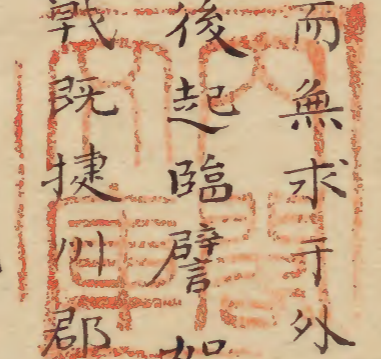 而無求于外
後起臨譬如
戰既捷州郡